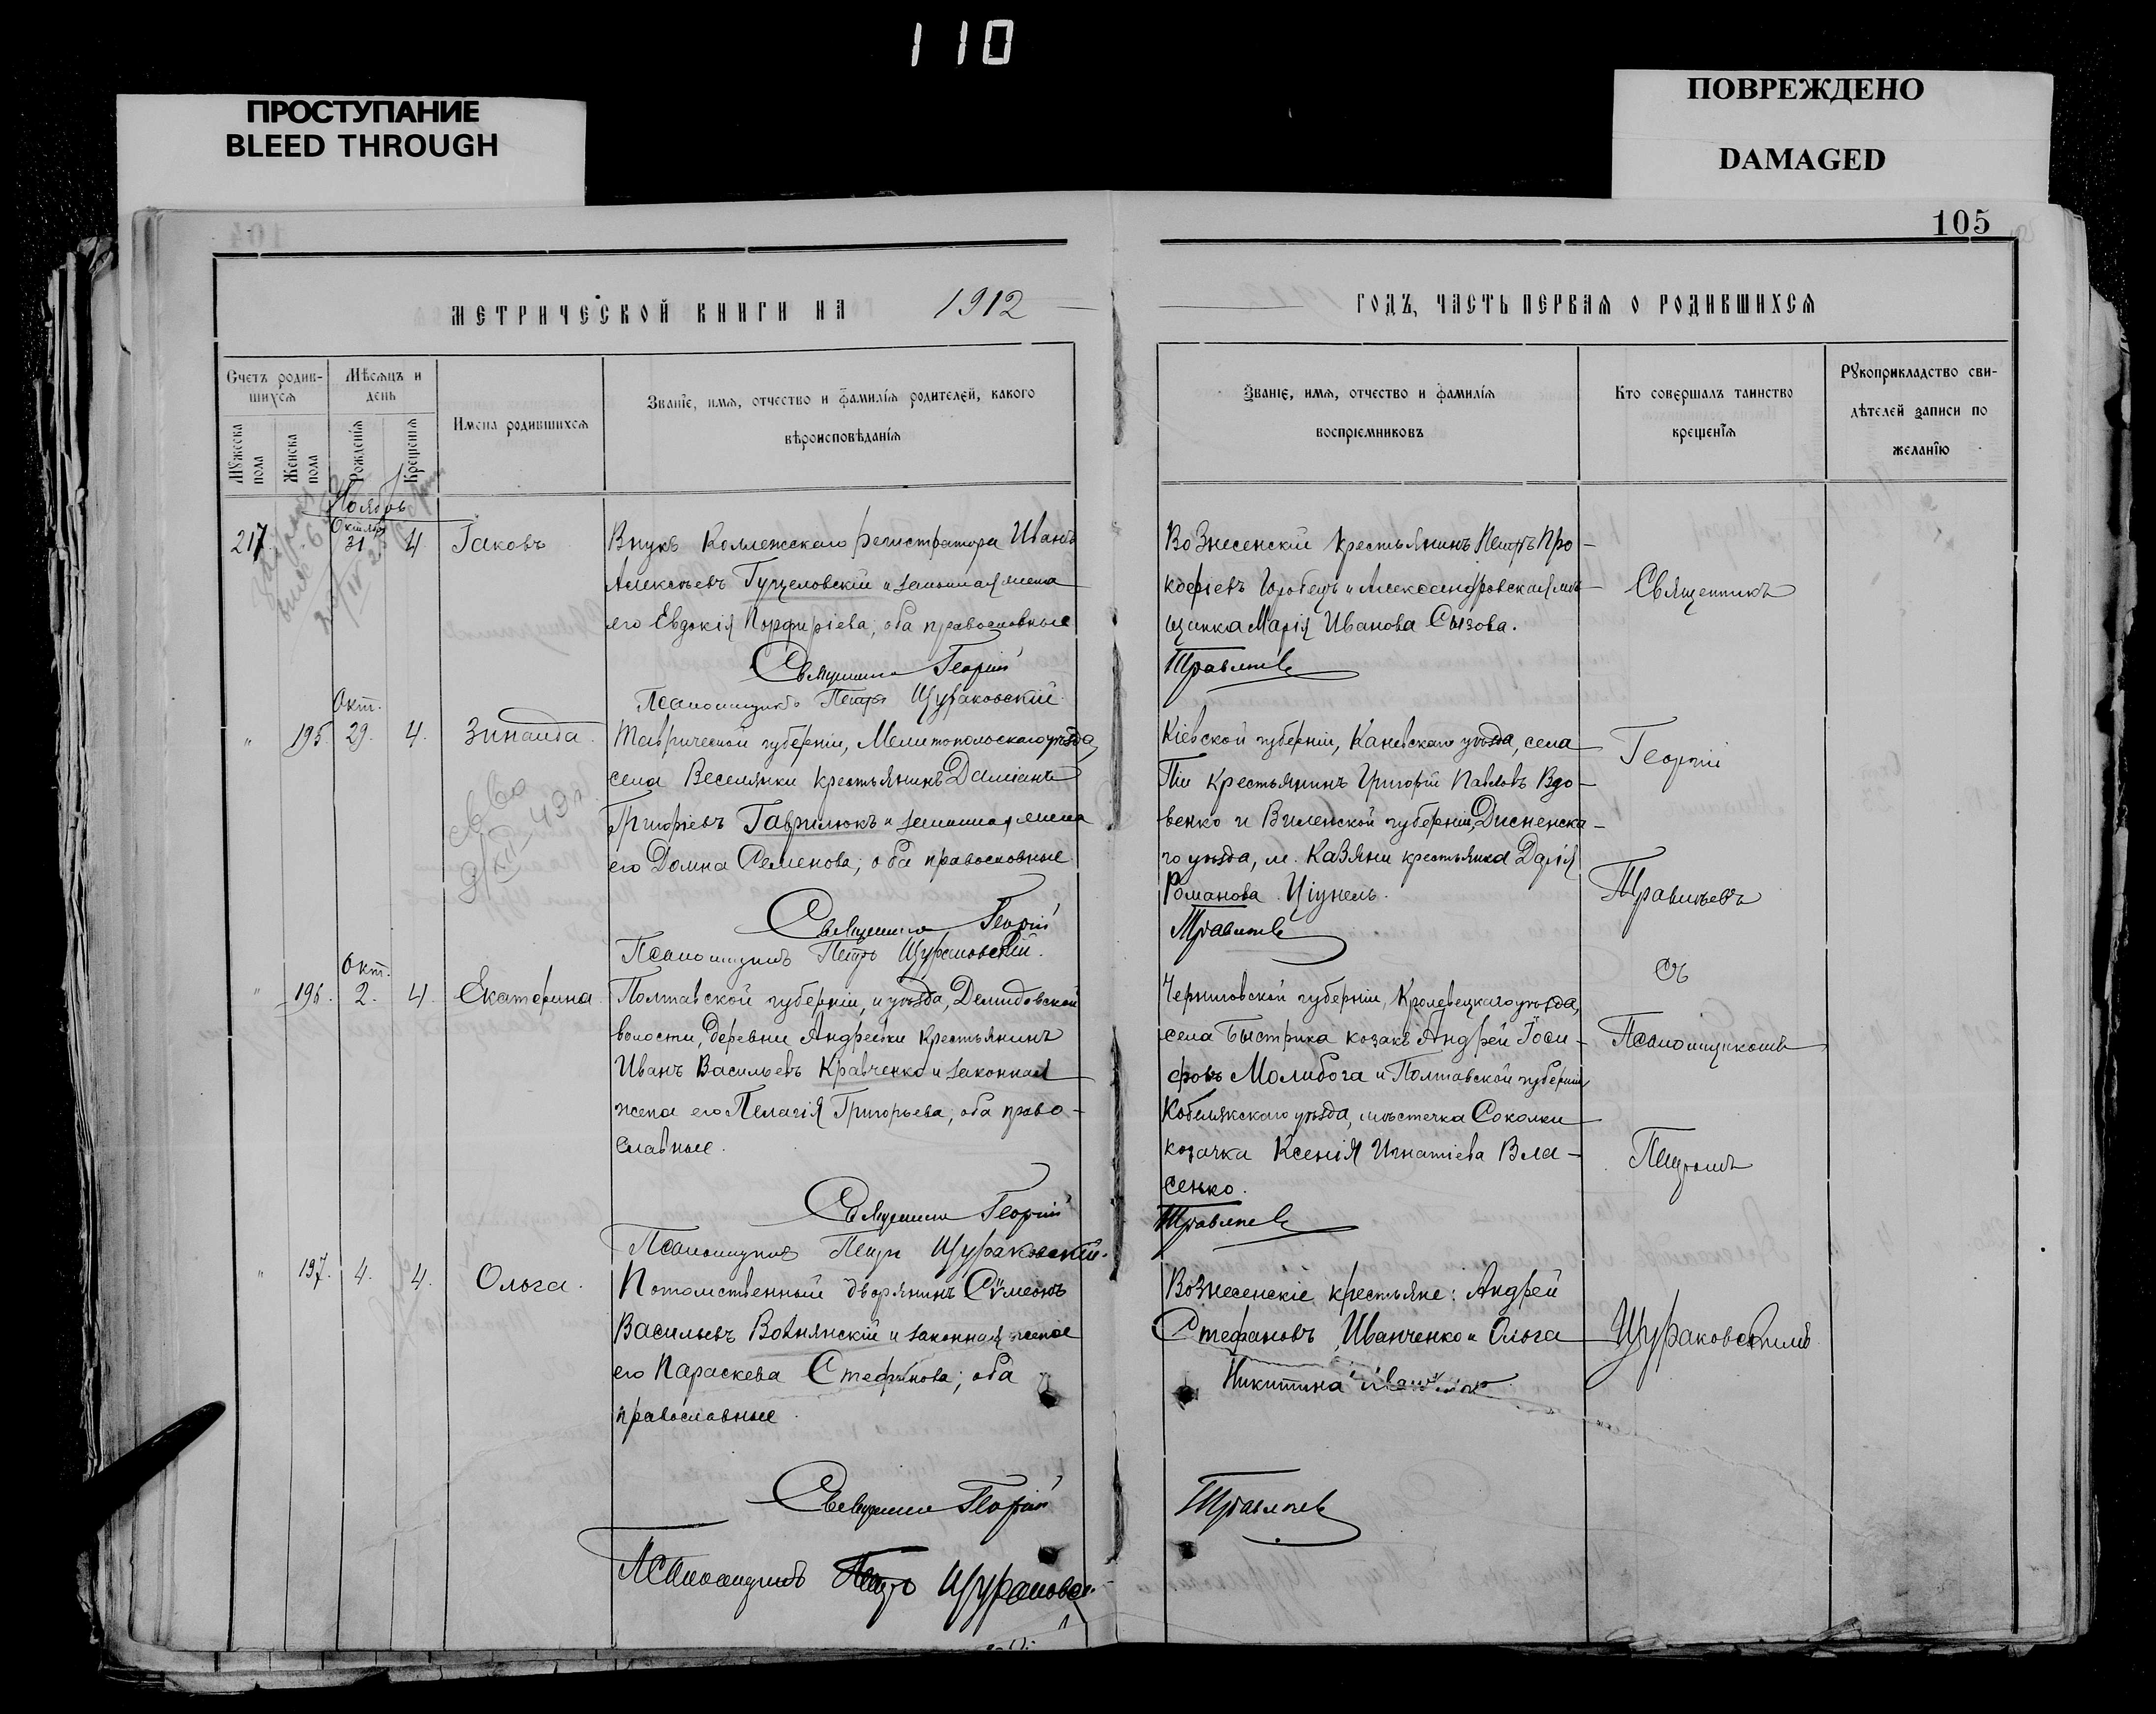 110
ПРОСТУПАНИЕ
BLEED THROUGH
ПОВРЕЖДЕНО
DAMAGED
105
МЕТРИЧЕСКОЙ КНИГИ НА 1912
ГОДЪ, ЧАСТЬ ПЕРВАЯ О РОДИВШИХСЯ
Счетъ родив-
шихся
Мужеска пола
Женска пола
Мѣсяцъ и
день
Рожденія
Крещенія
Имена родившихся
Званіе, имя, отчество и фамилія родителей, какого
вѣроисповѣданія
Званіе, имя, отчество и фамилія
воспріемниковъ
Кто совершалъ таинство
крещенія
Рукоприкладство сви-
дѣтелей записи по
желанію
Ноябрь
Октября
217. 31 4 Іаковъ
Внукъ Коллежскаго регистратора Иванъ
Алексѣевъ и законная жена
его Евдокія Порфиріева, оба православные
Священникъ Георгій
Псаломщикъ Петръ Щураковскій
Вознесенскій крестьянинъ Петръ Про-
кофіевъ Горобецъ и Александровская мѣ-
щанка Марія Иванова Сызова.
Окт.
" 195. 29. 4. Зинаида.
Таврической губерніи, Мелитопольскаго уѣзда,
села Веселянки крестьянинъ Даміанъ
Григорьевъ Гаврилюкъ и законная жена
его Домна Семенова, оба православные
Священникъ Георгій
Псаломщикъ Петръ Щураковскій.
Кіевской губерніи, Каневскаго уѣзда, села
Піи крестьянинъ Григорій Павловъ Вдо-
венко и Виленской губерніи, Дисненска-
го уѣзда, м. Казяны крестьянка Дарія
Романова
Окт.
" 196. 2. 4. Екатерина.
Полтавской губерніи, и уѣзда, Демидовской
волости, деревни Андреевки крестьянинъ
Иванъ Васильевъ Кравченко и законная
жена его Пелагія Григорьева, оба право-
славные.
Священникъ Георгій
Псаломщикъ Петръ Щураковскій.
Черниговской губерніи, Кролевецкаго уѣзда,
села Быстрика козакъ Андрей Іоси-
фовъ Молибога и Полтавской губерніи
Кобелякскаго уѣзда, мѣстечка Соколки
козачка Ксенія Игнатіева Вла-
сенко.
" 197. 4. 4. Ольга.
Потомственный дворянинъ Сѵмеонъ
Васильевъ и законная жена
его Параскева Стефанова; оба
православные.
Священникъ Георгій
Псаломщикъ Петръ
Вознесенскіе крестьяне: Андрей
Стефановъ Иванченко и Ольга
Никитина
Священникъ
Георгій
съ
Псаломщикомъ
Петромъ
Щураковскимъ